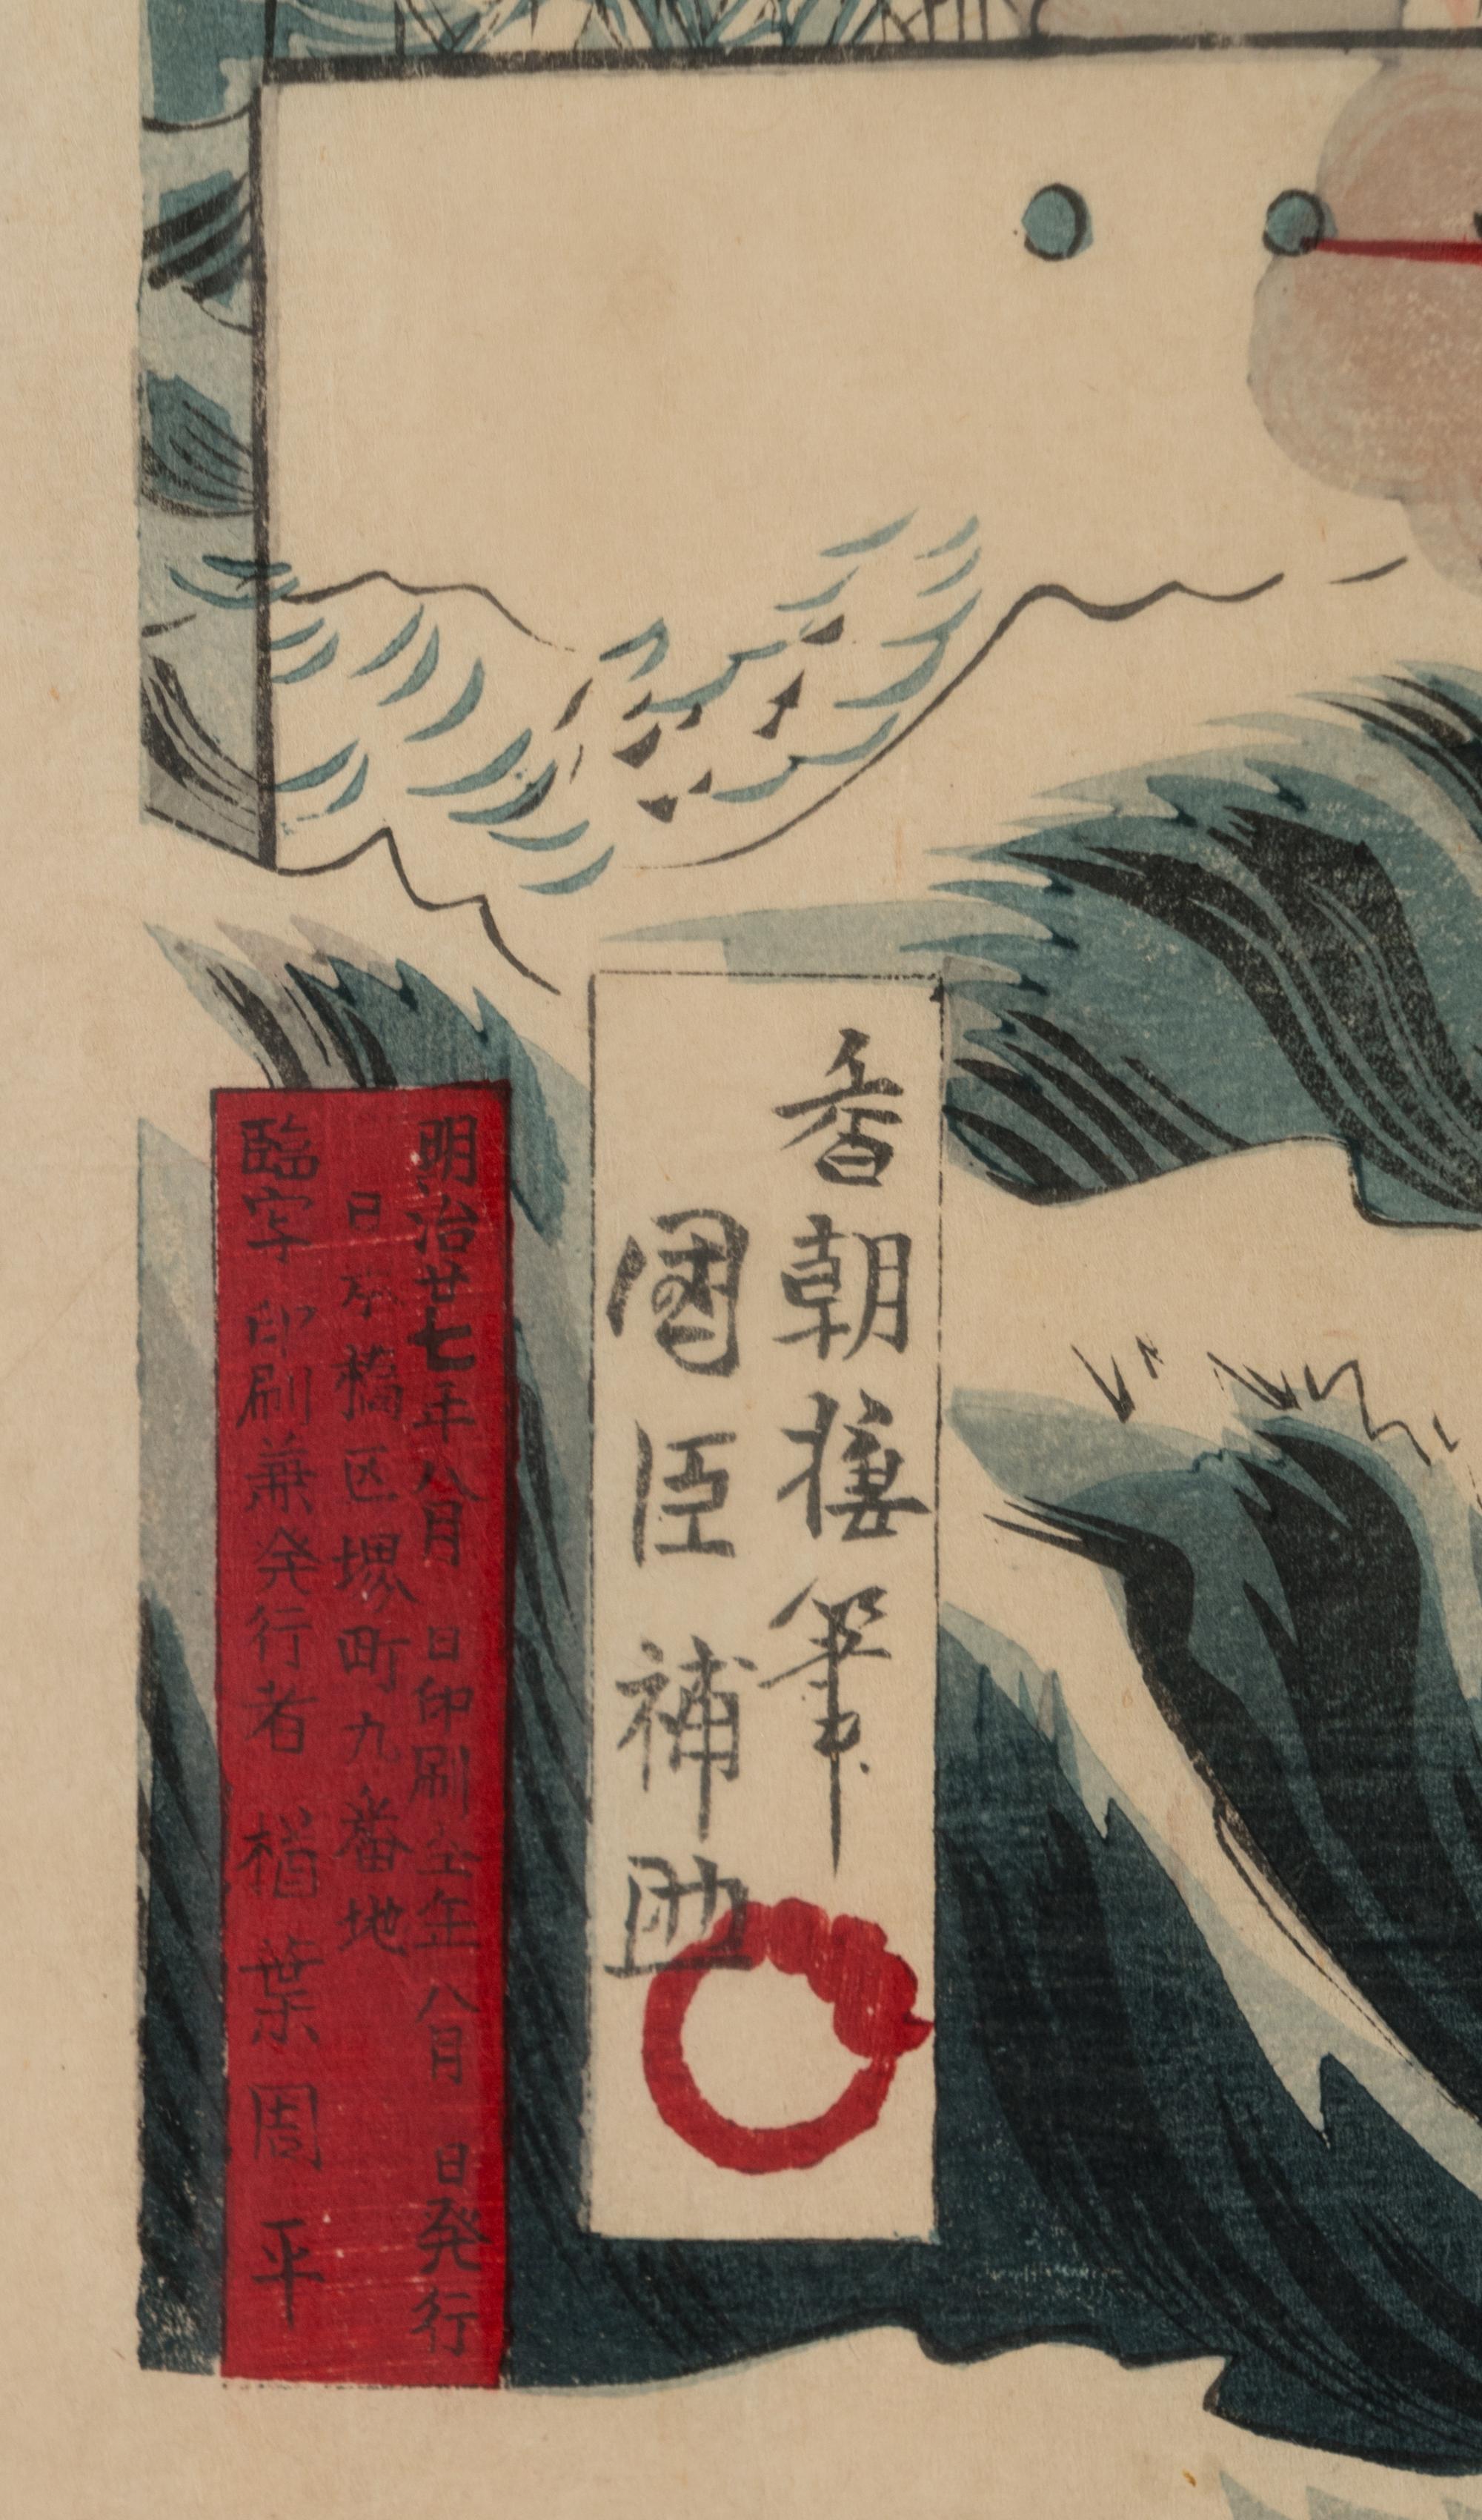 香朝楼筆
國臣補助
明治廿七年八月 日印刷仝年八月 日発行
日本橋区堺町九番地
臨写印刷兼発行者 楢葉周平